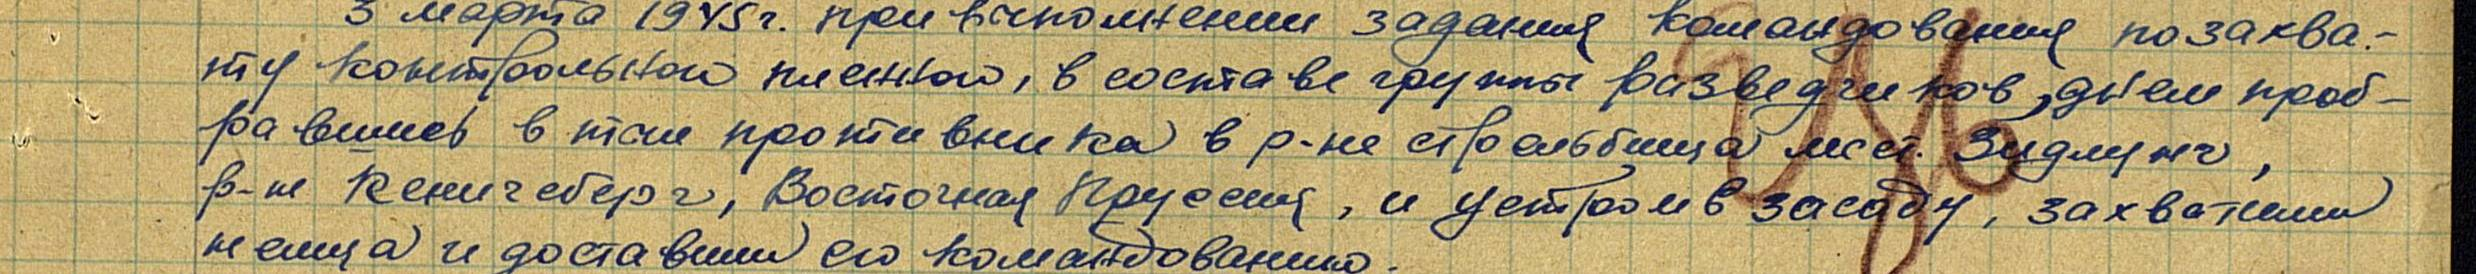 3 марта 1945 г. при выполнении задания командования по захва-
ту контрольного пленного, в составе группы разведчиков, днем проб-
равшись в тыл противника в р-не стрельбища мест. Зидлунг,
р-н Кенигсберг, Восточная Пруссия, и устроив засаду, захватили
немца и доставили его командованию.